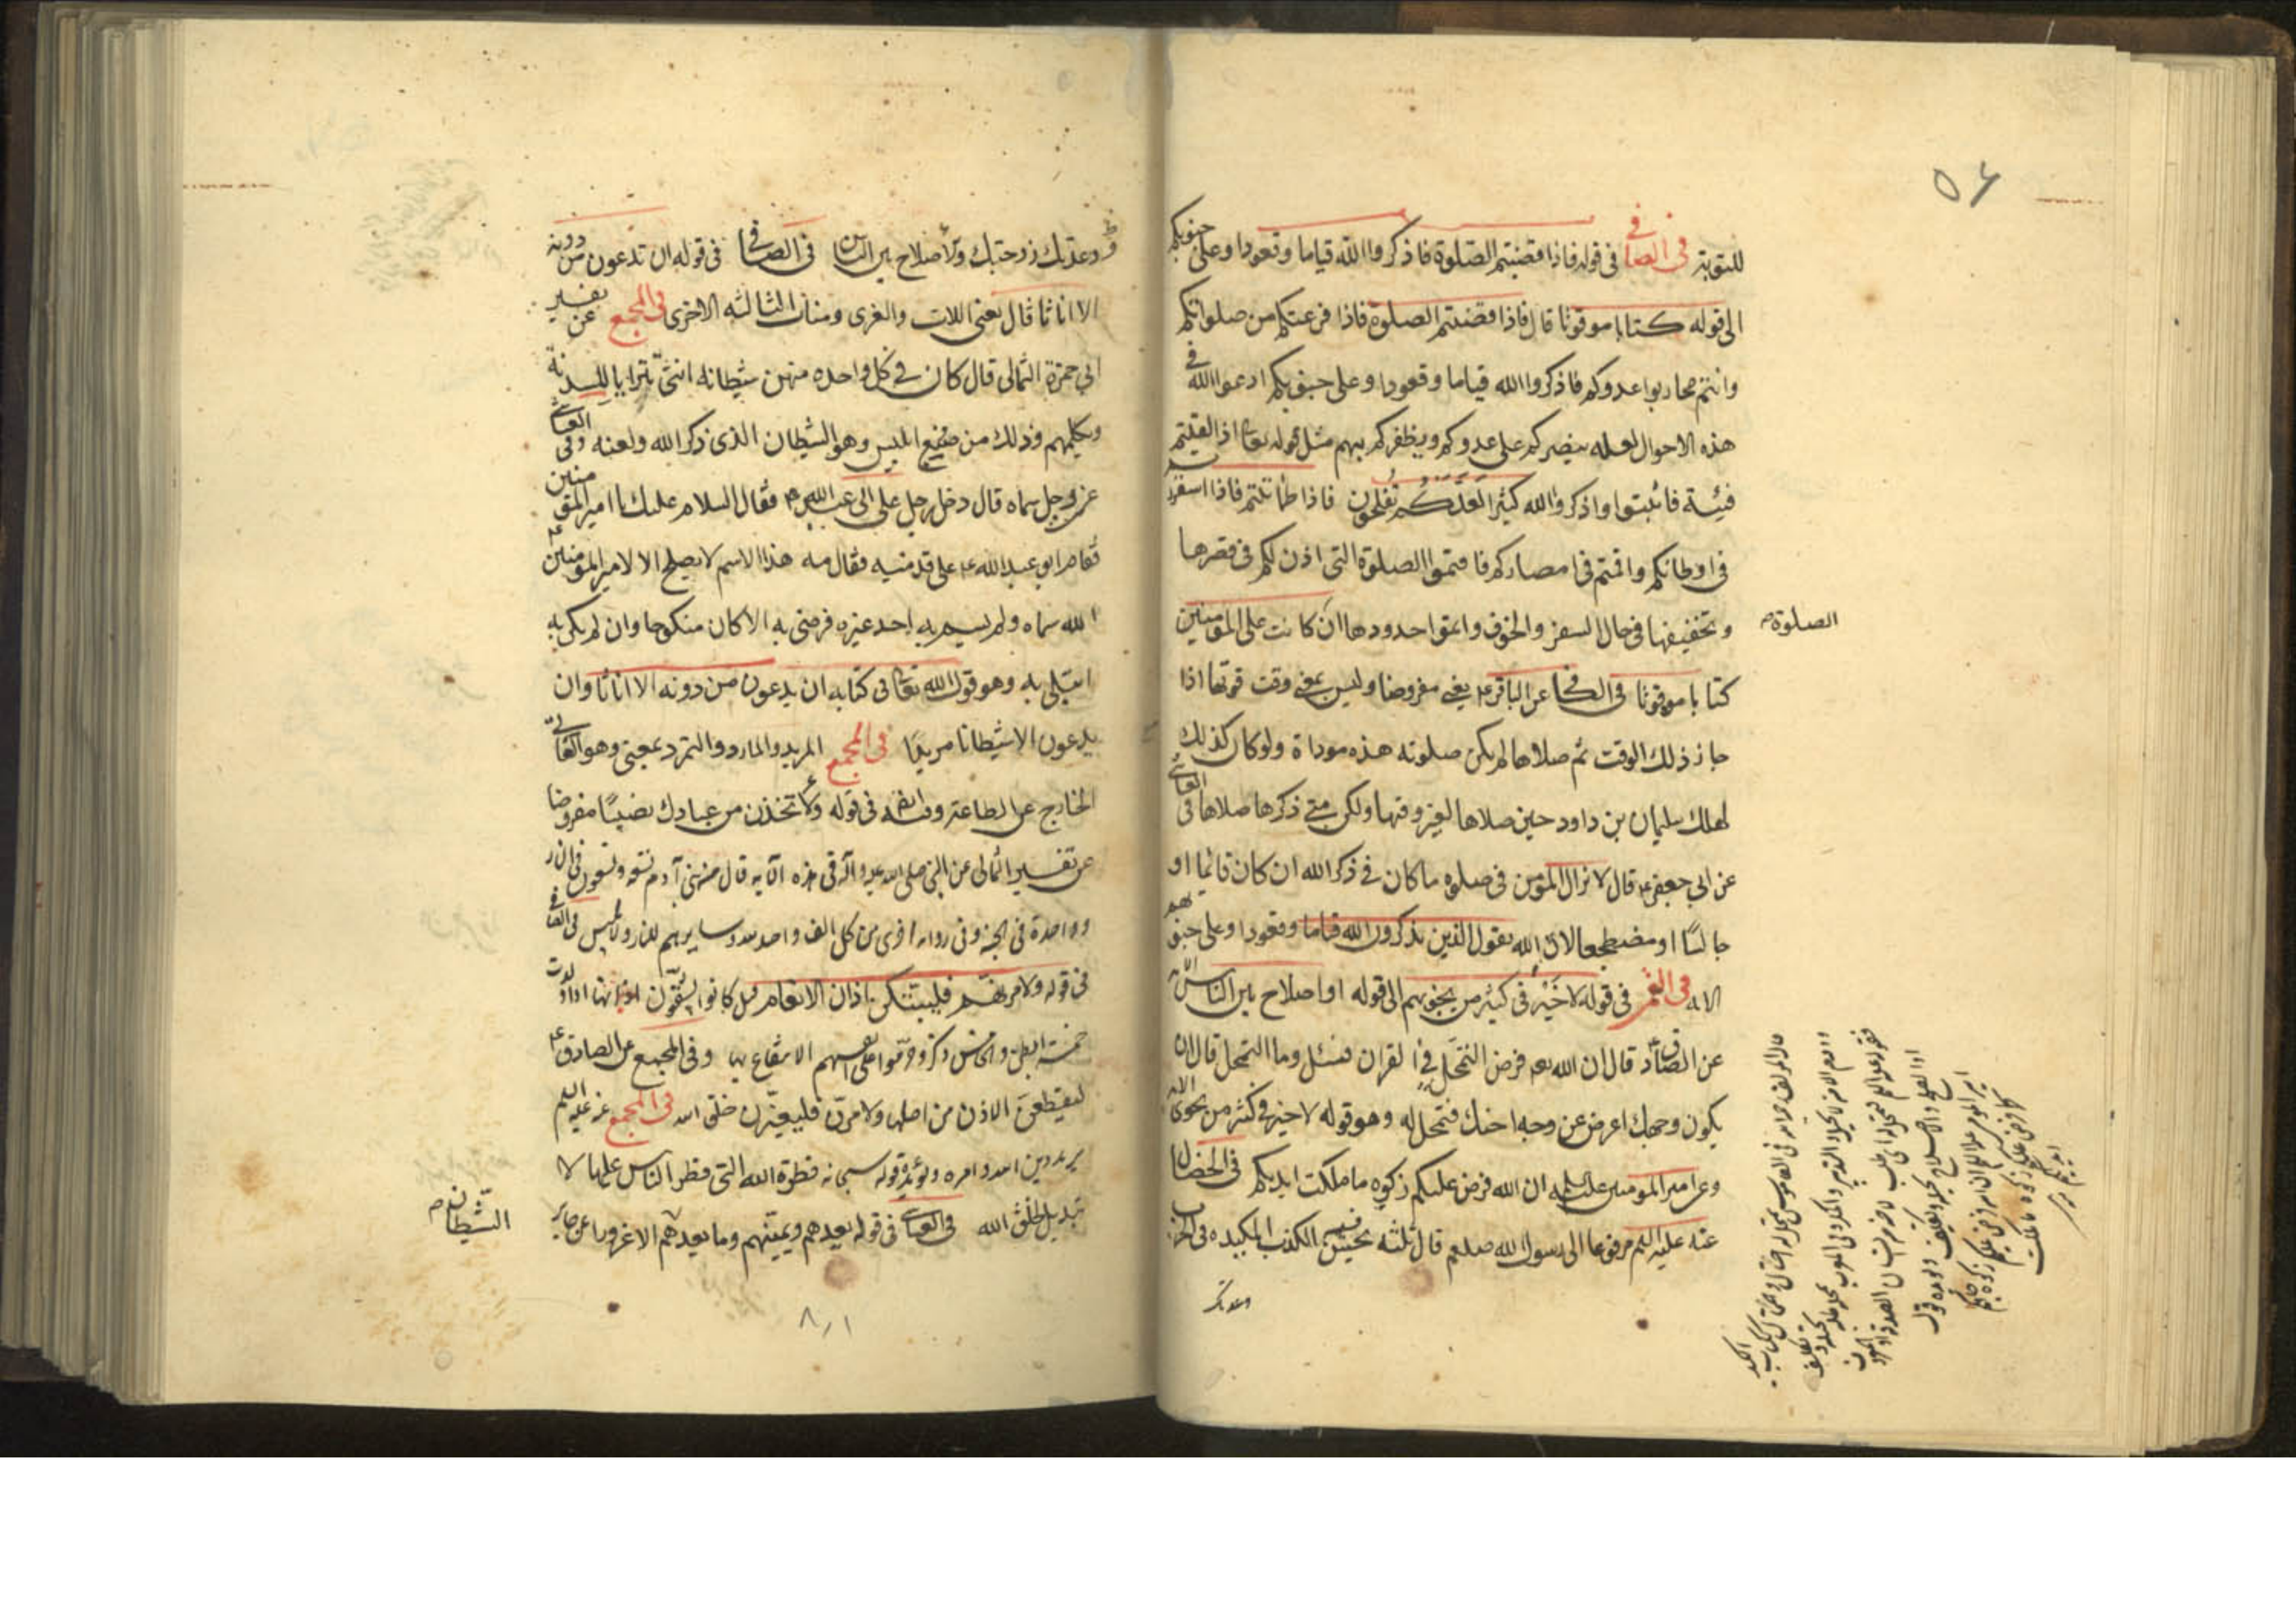 ٥٤
للتوبة فى الصافى فى قوله فاذا قضيتم الصلوة فاذكروا الله قياما وقعودا وعلى جنوبكم
الى قوله كتابا موقوتا قال فاذا قضيتم الصلوة فاذا فرغتم من صلواتكم
وانتم محاربوا عدوكم فاذكروا الله قياما وقعودا وعلى جنوبكم ادعوا الله فى
هذه الاحوال لعله ينصركم على عدوكم ويظفركم بهم مثل قوله تعالى اذا لقيتم
فيئة فاثبتوا واذكروا الله كثيرا لعلكم تفلحون فاذا طمأننتم فاذا استقررتم
فى اوطانكم واقمتم فى امصاركم فاتموا الصلوة التى اذن لكم فى قصرها
وتخفيفها فى حال السفر والخوف واتموا حدودها ان كانت على المؤمنين
الصلوة
كتابا موقوتا فى الكافى عن الباقر ع يعنى مفروضا وليس يعنى وقت فوتها اذا
جاز ذلك الوقت ثم صلاها لم يكن صلوته هذه موداة ولو كان كذلك
لهلك سليمان بن داود حين صلاها لغير وقتها ولكن متى ذكرها صلاها فى العياشى
عن ابى جعفر ع قال لا يزال المؤمن فى صلوة ما كان فى ذكر الله ان كان قائما او
جالسا او مضطجعا لان الله يقول الذين يذكرون الله قياما وقعودا وعلى جنوبهم
الايه فى القمى فى قوله لا خير فى كثير من نجويهم الى قوله او اصلاح بين الناس
عن الصادق قال ان الله فرض التمحل فى القران فسئل وما التمحل قال ان
يكون وجهك اعرض عن وجه اخيك فتمحل له وهو قوله لا خير فى كثير من نجوى الايه
وعن امير المومنين عليه السلم ان الله فرض عليكم زكوة ما ملكت ايديكم فى الخصال
عنه عليه السلم مرفوعا الى رسول الله صلعم قال ثلثه يحسن فيهن الكذب المكيده فى الحرب
وعدتك
وعدتك زوجتك والاصلاح بين الناس فى الصافى فى قوله ان تدعون من دونه
الا اناثا قال يعنى اللات والعزى ومناة الثالثه الاخرى فى المجمع عن تفسير
ابى حمزة الثمالى قال كان فى كل واحده منهن شيطانه انثى تترايا للسدنة
وتكلمهم وذلك من صنيع ابليس وهو الشيطان الذى ذكر الله ولعنه وفى العياشى
عن رجل سماه قال دخل رجل على ابى عبد الله ع فقال السلام عليك يا امير المؤمنين
فقام ابو عبد الله ع على قدميه فقال مه هذا الاسم لا يصلح الا لامير المؤمنين ع
الله سماه ولم يسم به احد غيره فرضى به الا كان منكوحا وان لم يكن به
ابتلى به وهو قول الله تعالى فى كتابه ان يدعون من دونه الا اناثا وان
يدعون الا شيطانا مريدا فى المجمع المريد والمارد والمتمرد بمعنى وهو العاتى
الخارج عن الطاعة وفيه ايضا فى قوله ولا تخذن من عبادك نصيبا مفروضا
عن تفسير الثمالى عن النبى صلى الله عليه وآله فى هذه الآيه قال من بنى آدم تسعة وتسعون فى النار
وواحدة فى الجنة وفى رواية اخرى من كل الف واحد لله وسايرهم للنار ولابليس فى الصافى
فى قوله ولامرنهم فليبتكن اذان الانعام قيل كانوا يشقون اذانها اذا ولدت
خمسة ابطن والخامس ذكر وحرموا على انفسهم الانتفاع بها وفى المجمع عن الصادق ع
ليقطعن الاذن من اصلها ولامرنهم فليغيرن خلق الله فى المجمع عنه عليه السلم
يريد دين الله وامره ويؤيده قوله سبحانه فطرة الله التى فطر الناس عليها لا
تبديل لخلق الله فى العياشى فى قوله يعدهم ويمنيهم وما يعدهم الا غرورا عن جابر
الشيطان
٨٠١